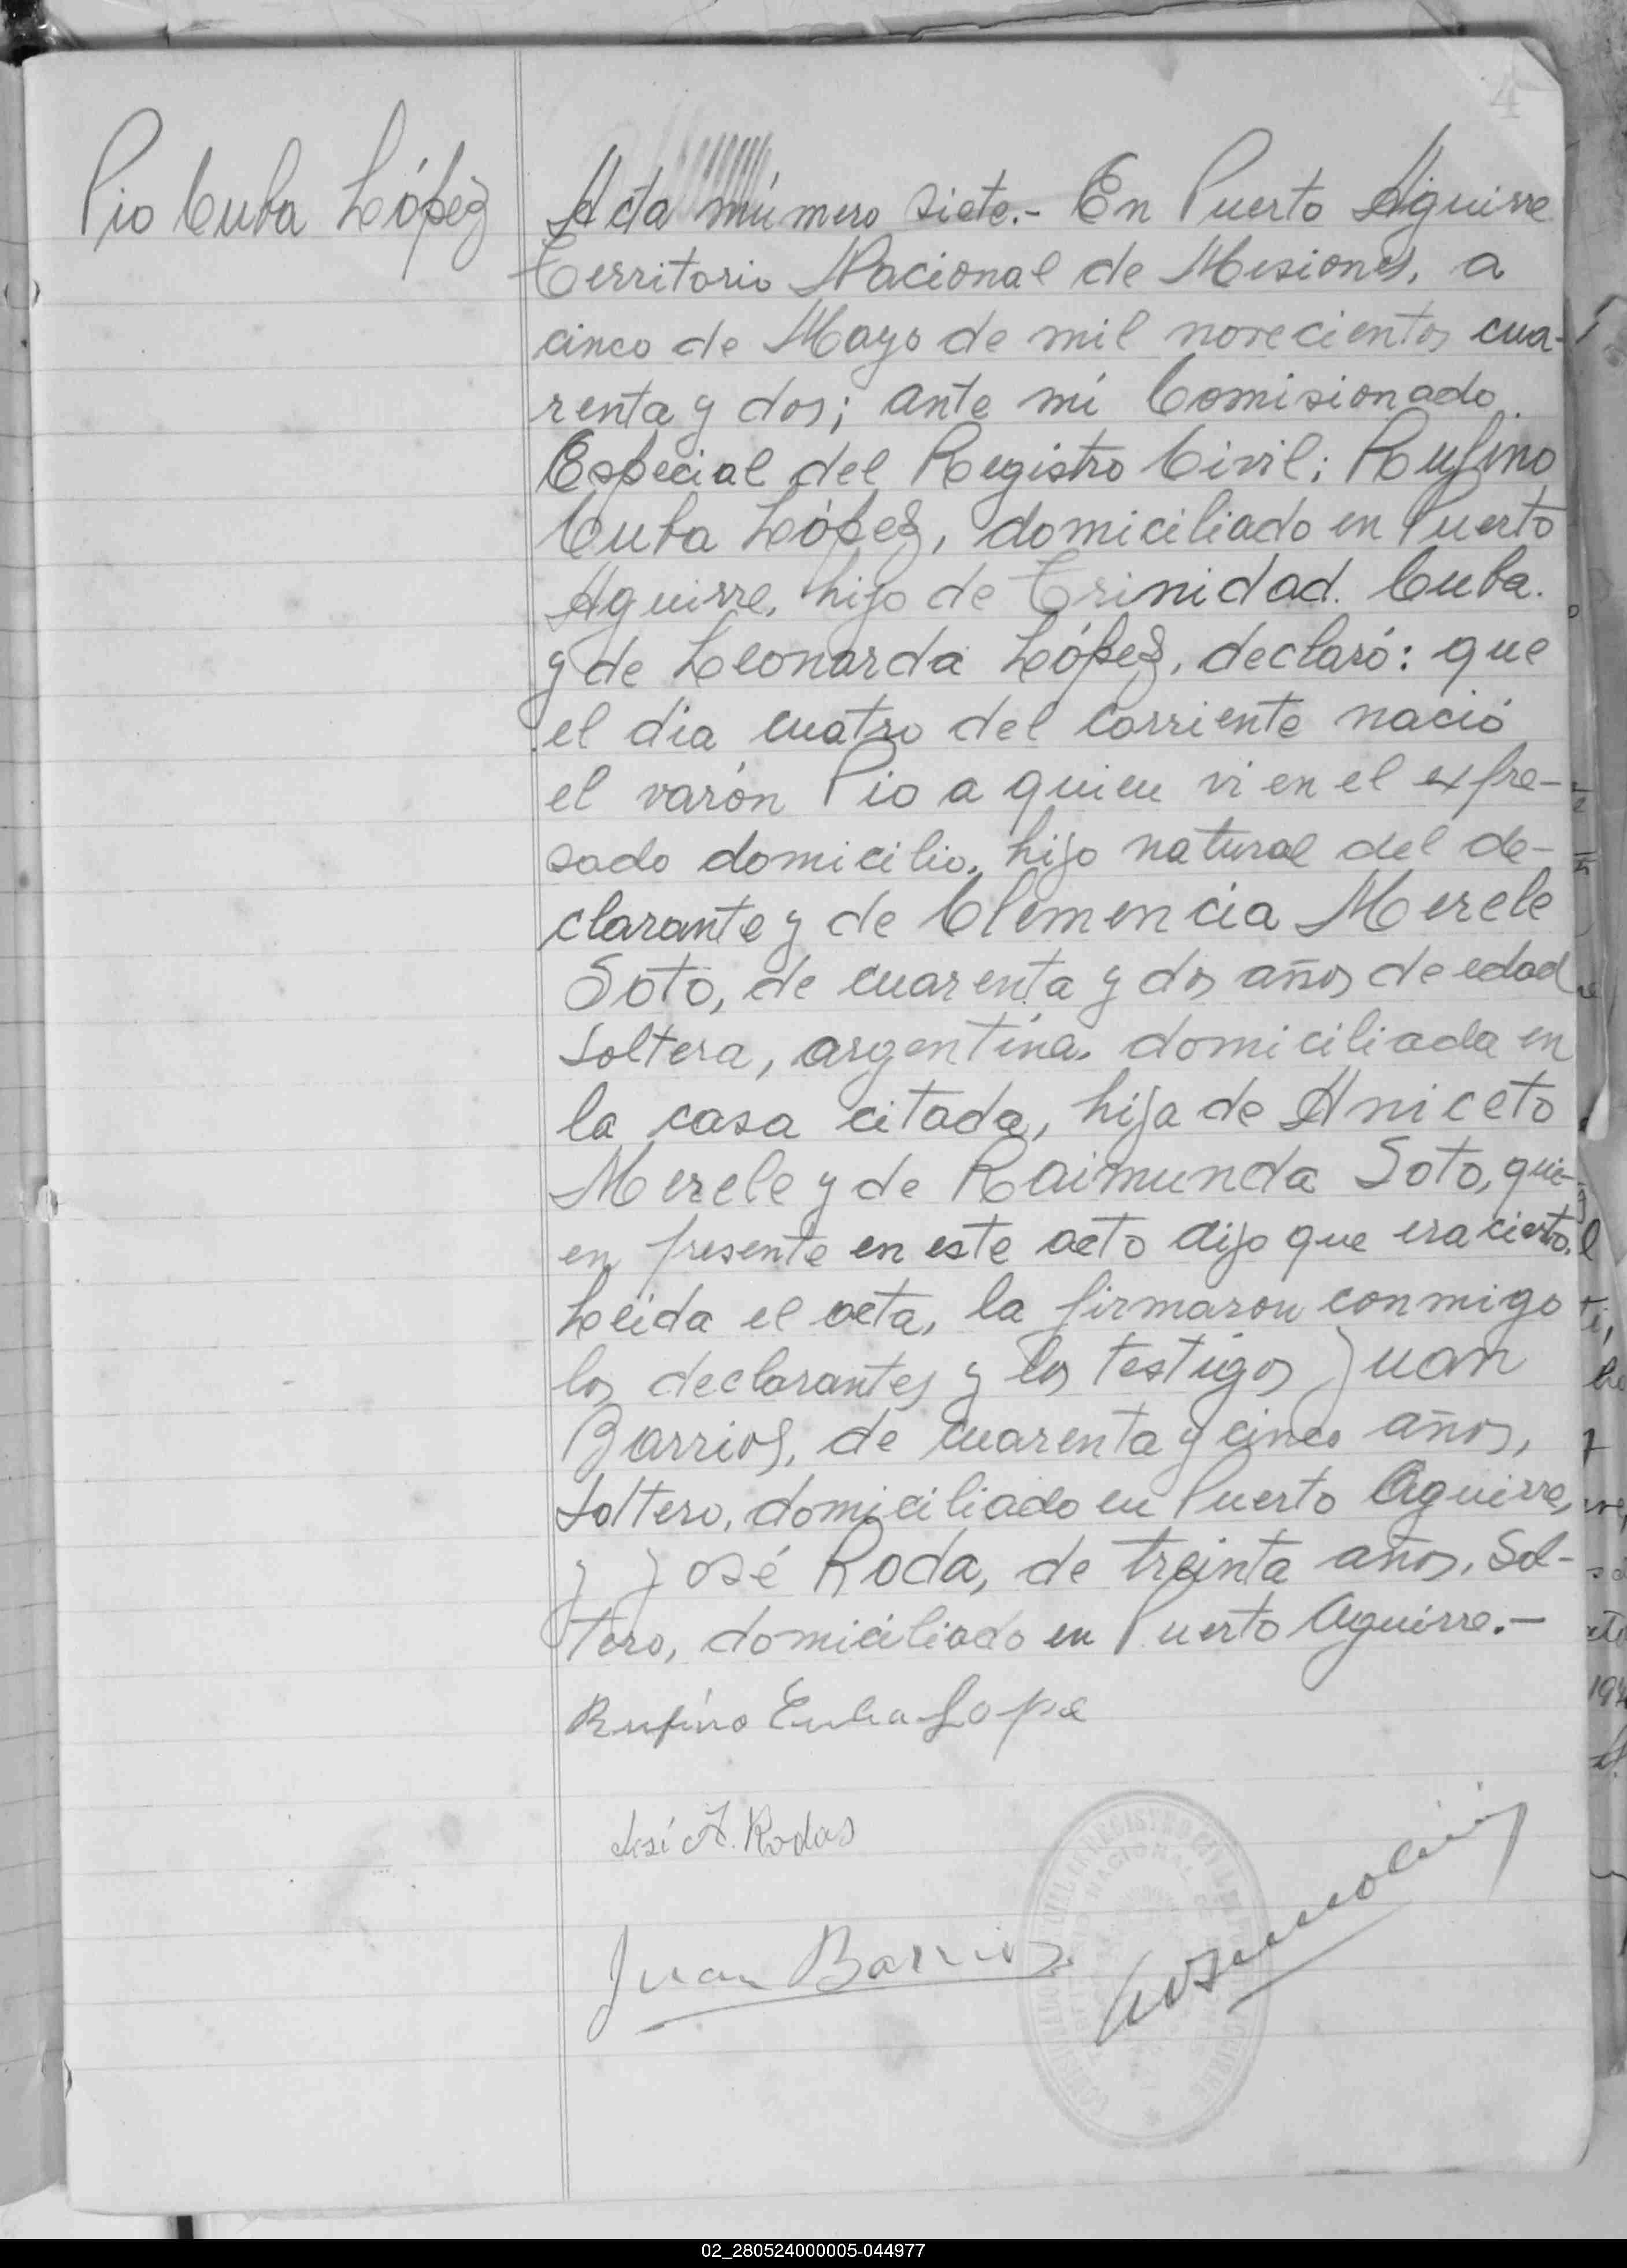 4
Pio Cuba López
Acta número siete.- En Puerto Aguirre
Territorio Nacional de Misiones, a
cinco de Mayo de mil novecientos cua-
renta y dos; ante mí Comisionado
Especial del Registro Civil; Rufino
Cuba López, domiciliado en Puerto
Aguirre, hijo de Trinidad Cuba.
y de Leonarda López, declaró: que
el dia cuatro del corriente nació
el varón Pio a quien vi en el expre-
sado domicilio, hijo natural del de-
clarante y de Clemencia Merele
Soto, de cuarenta y dos años de edad
soltera, argentina, domiciliada en
la casa citada, hija de Aniceto
Merele y de Raimunda Soto, qui-
en presente en este acto dijo que era cierto.
Leida el acta, la firmaron conmigo
los declarantes y los testigos Juan
Barrios, de cuarenta y cinco años,
soltero, domiciliado en Puerto Aguirre,
y José Roda, de treinta años, sol-
tero, domiciliado en Puerto Aguirre.-
Rufino Cuba Lope
José A. Rodas
Juan Barrios
02_280524000005-044977